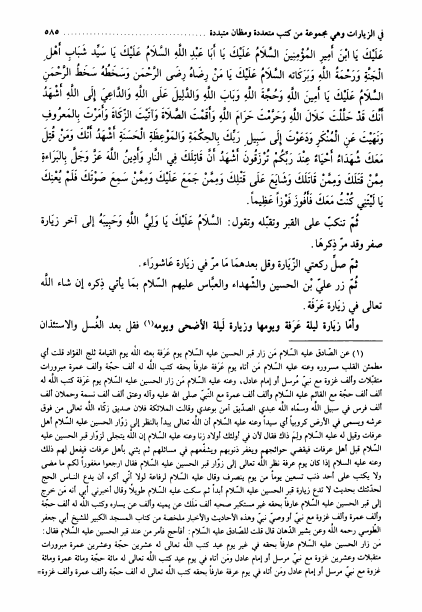 في الزيارات وهي مجموعة من كتب متعددة ومظان متبددة ٥٨٥
عَلَيْكَ يَا ابْنَ أَمِيرِ المُؤْمِنِينَ السَّلاَمُ عَلَيْكَ يَا أَبَا عَبْدِ اللَّهِ السَّلاَمُ عَلَيْكَ يَا سَيِّدَ شَبَابِ أَهْلِ
الجَنَّةِ وَرَحْمَةُ اللَّهِ وَبَرَكَاتُه السَّلاَمُ عَلَيْكَ يَا مَنْ رِضَاهُ رِضَى الرَّحْمنِ وَسَخَطُهُ سَخَطُ الرَّحْمنِ
السَّلاَمُ عَلَيْكَ يَا أَمِينَ اللَّهِ وَحُجَّةَ اللَّهِ وَبَابَ اللَّهِ وَالدَّلِيلَ عَلَى اللَّهِ وَالدَّاعِيَ إِلَى اللَّهِ أَشْهَدُ
أَنَّكَ قَدْ حَلَّلْتَ حَلاَلَ اللَّهِ وَحَرَّمْتَ حَرَامَ اللَّهِ وَأَقَمْتَ الصَّلاَةَ وَآتَيْتَ الزَّكَاةَ وَأَمَرْتَ بِالمَعْرُوفِ
وَنَهَيْتَ عَنِ المُنْكَرِ وَدَعَوْتَ إِلَى سَبِيلِ رَبِّكَ بِالحِكْمَةِ وَالمَوْعِظَةِ الحَسَنَةِ أَشْهَدُ أَنَّكَ وَمَنْ قُتِلَ
مَعَكَ شُهَدَاءُ أَحْيَاءٌ عِنْدَ رَبِّكُمْ تُرْزَقُونَ أَشْهَدُ أَنَّ قَاتِلَكَ فِي النَّارِ وَأَدِينُ اللَّهَ عَزَّ وَجَلَّ بِالبَرَاءَةِ
مِمَّنْ قَتَلَكَ وَمِمَّنْ قَاتَلَكَ وَشَايَعَ عَلَى قَتْلِكَ وَمِمَّنْ جَمَعَ عَلَيْكَ وَمِمَّنْ سَمِعَ صَوْتَكَ فَلَمْ يُعِنْكَ
يَا لَيْتَنِي كُنْتُ مَعَكَ فَأَفُوزَ فَوْزاً عَظِيماً.
ثُمَّ تنكبّ على القبر وتقبّله وتقول: السَّلاَمُ عَلَيْكَ يَا وَلِيَّ اللَّهِ وَحَبِيبَهُ إلى آخر زيارة
صفر وقد مرّ ذِكرها.
ثمّ صلّ ركعتي الزّيارة وقل بعدهما مَا مرّ في زيَارة عَاشورَاء.
ثُمّ زر عليّ بْن الحسين والشّهداء والعبّاس عليهم السّلام بمَا يأتي ذِكره إن شاء اللّه
تعالى في زيَارة عَرَفَة.
وأمّا زيَارة ليلة عَرَفة ويومها وزيارة ليلة الأضحى ويومه(١) فقل بعد الغُسل والاستئذان
(١) عن الصّادق عليه السّلام مَن زار قبر الحسين عليه السّلام يوم عَرَفة بعثه اللّه يوم القيامة ثلج الفؤاد قلت أي
مطمئن القلب مسروره وعنه عليه السّلام مَن أتاه يوم عَرفة عارفاً بحقه كتب اللّه له ألف حجّة وألف عمرة مبرورات
متقبلات وألف غزوة مع نبيّ مُرسل أو إمام عادل، وعنه عليه السّلام مَن زار الحسين عليه السّلام يوم عَرَفة كتب اللّه له
ألف ألف حجّة مع القائم عليه السّلام وألف ألف عمرة مع النبيّ صلى اللّه عليه وآله وعتق ألف ألف نسمة وحملان ألف
ألف فرس في سبيل اللّه وسمّاه اللّه عبدي الصدّيق آمن بوعدي وقالت الملائكة فلان صديق زكّاه اللّه تعالى من فوق
عرشه ويسمى في الأرض كروبياً أي سيداً وعنه عليه السّلام أن اللّه تعالى يبدأ بالنظر إلى زوّار الحسين عليه السّلام أهل
عرفات وقيل له عليه السّلام ولِمَ ذلك فقال لأن في أولئك أولاد زنا وعنه عليه السّلام إن اللّه يتجلى لزوّار قبر الحسين عليه
السّلام قبل أهل عرفات فيقضي حوائجهم ويغفر ذنوبهم ويشفّعهم في مسائلهم ثم يثني بأهل عرفات فيفعل لهم ذلك
وعنه عليه السلام إذا كان يوم عرفة نظر اللّه تعالى إلى زوّار قبر الحسين عليه السّلام فقال ارجعوا مغفوراً لكم ما مضى
ولا يكتب على أحد ذنب تسعين يوماً من يوم ينصرف وقال عليه السّلام لرفاعة لولا أنّي أكره أن يدع الناس الحج
لحدّثتك بحديث لا تدع زيارة قبر الحسين عليه السّلام أبداً ثم سكت عليه السّلام طويلاً وقال أخبرني أبي أنه مَن خرج
إلى قبر الحسين عليه السّلام عارفاً بحقه غير مستكبر صحبه ألف مَلَك عن يمينه وألف عن يساره وكتب اللّه له ألف حجّة
وألف عمرة وألف غزوة مع نبيّ أو وصيّ نبيّ وهذه الأحاديث والأخبار ملخصة من كتاب المسجد الكبير للشيخ أبي جعفر
الطّوسي رحمه اللّه وعن بشير الدّهان قال قلت للصّادق عليه السّلام: أفأحج فأمر من عند قبر الحسين عليه السّلام فقال:
مَن زار الحسين عليه السّلام عارفاً بحقّه في غير يوم عيد كتب اللّه له عشرين حجّة وعشرين عمرة مبرورات
متقبلات وعشرين غزوة مع نبيّ مرسل أو إمام عادل ومَن أتاه في يوم عيد كتب اللّه تعالى له مائة حجّة ومائة عمرة ومائة
غزوة مع نبيّ مرسل أو إمام عادل ومَن أتاه في يوم عرفة عارفاً بحقه كتب اللّه تعالى له ألف حجّة وألف عمرة وألف غزوة=